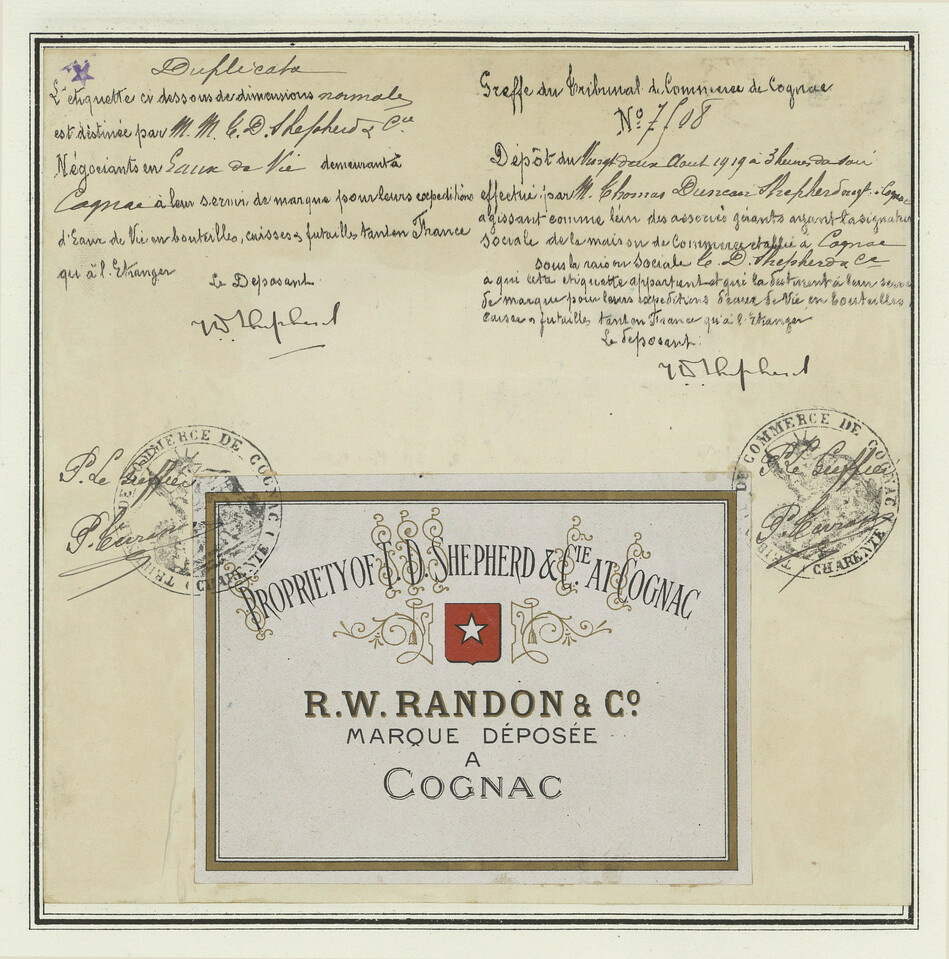 Duplicata
L'etiquette ci dessous de dimensions normales
est destinée par M. M. T. D. Shepherd & Cie
Négociants en Eaux de Vie demeurant à
Cognac à leur servir de marque pour leurs expeditions
d'Eaux de Vie en bouteilles, caisses, futailles tant en France
qu'à l'Etranger
Le Deposant
T D Shepherd
Greffe du Tribunal de Commerce de Cognac
No 7508
Dépôt du Vingt deux Aout 1919 à 3 heures du soir
effectué par M. Thomas Duncan Shepherd à Cognac
agissant comme l'un des associés gérants ayant la signature
sociale de la maison de Commerce etablie à Cognac
sous la raison sociale T. D. Shepherd & Cie
a qui cette etiquette appartient et qui la destinent à leur servir
de marque pour leurs expeditions d'eaux de Vie en bouteilles,
caisses, futailles tant en France qu'à l'Etranger
Le deposant
T D Shepherd
P. Le Greffier
TRIBUNAL DE COMMERCE DE COGNAC
(CHARENTE)
P. Le Greffier
TRIBUNAL DE COMMERCE DE COGNAC
(CHARENTE)
PROPRIETY OF T. D. SHEPHERD & CIE. AT COGNAC
R.W. RANDON & Co
MARQUE DÉPOSÉE
A
COGNAC